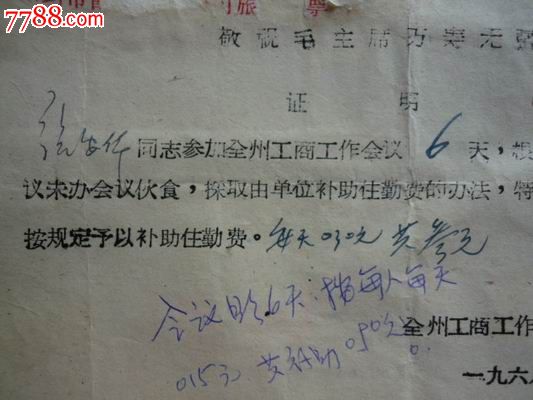 7788.com
旅 票
敬祝毛主席万寿无疆
证 明
同志参加全州工商工作会议 6 天，根
议未办会议伙食，采取由单位补助住勤费的办法，特
按规定予以补助住勤费。每天030元 共叁元
会议 6天，按每人每天
015元，共补助 090元
全州工商工作
一九六八